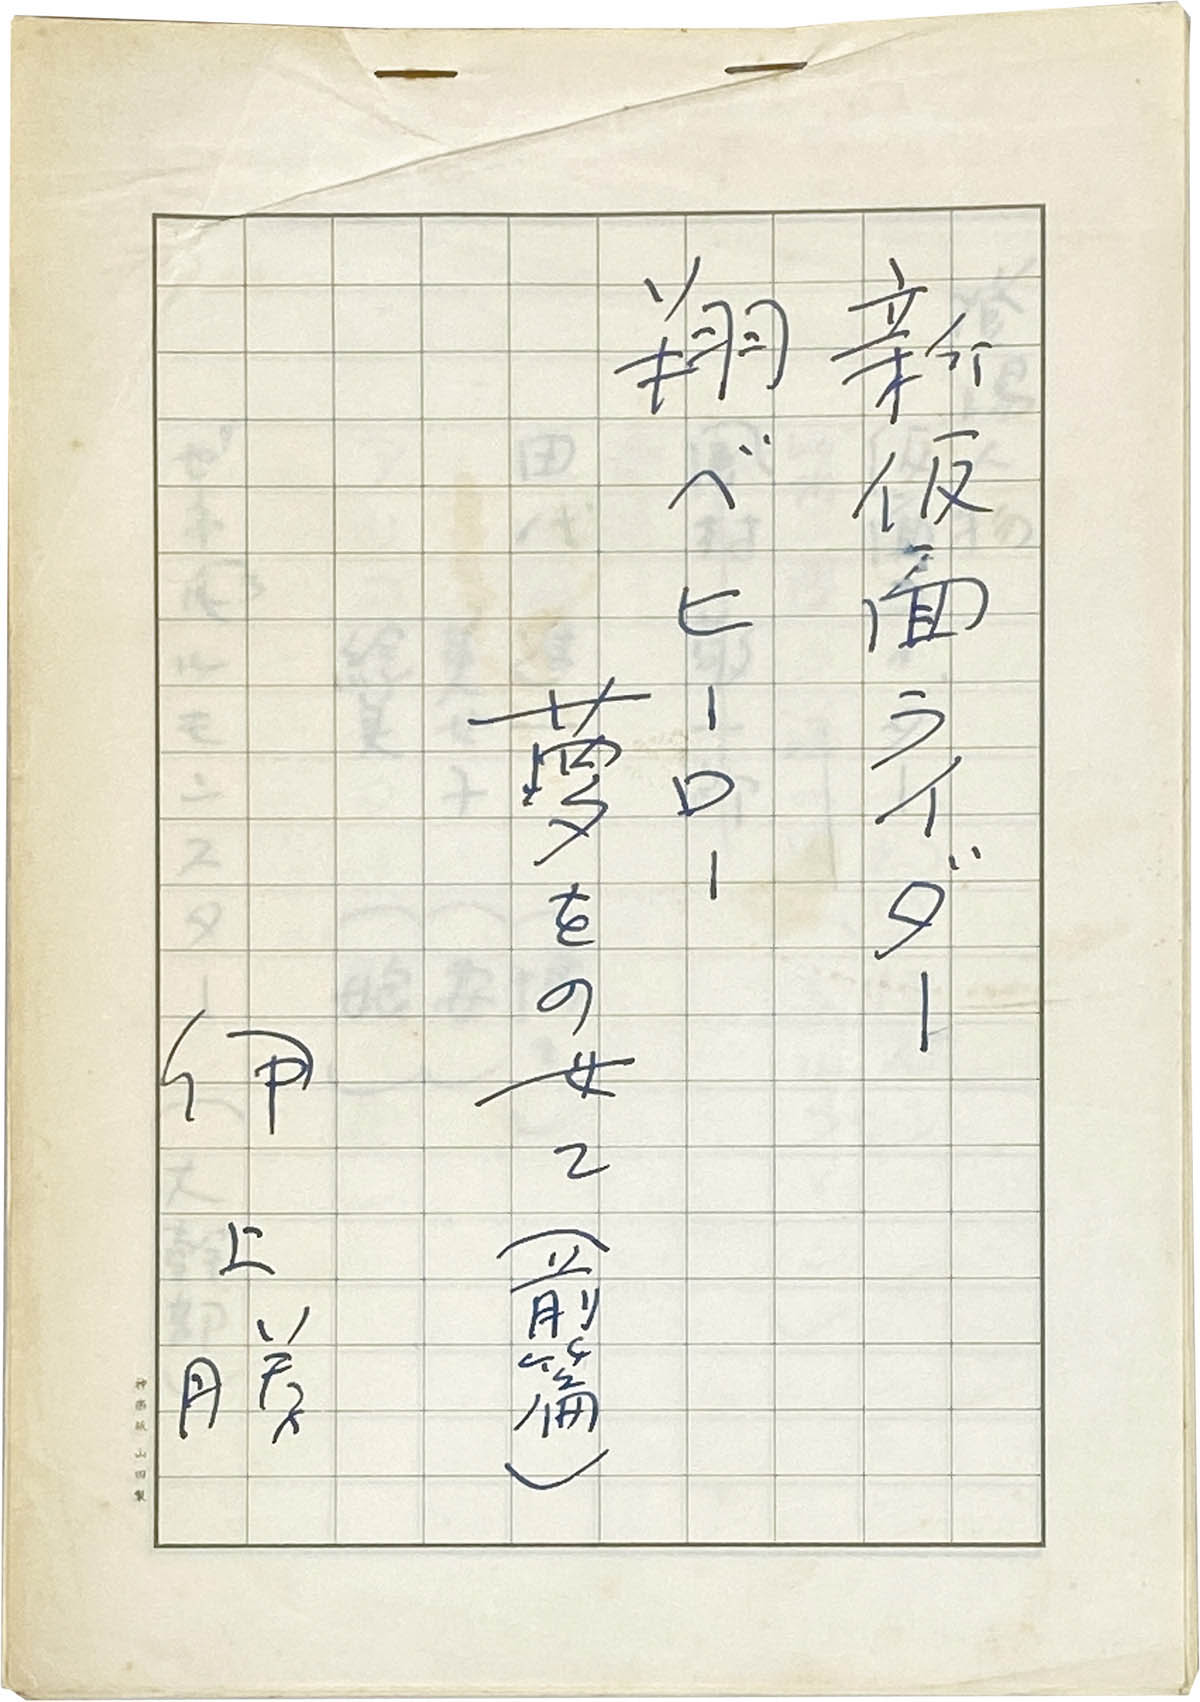 新仮面ライダー
翔べヒーロー
夢をの せて(前篇)
伊上勝
神楽坂 山田製